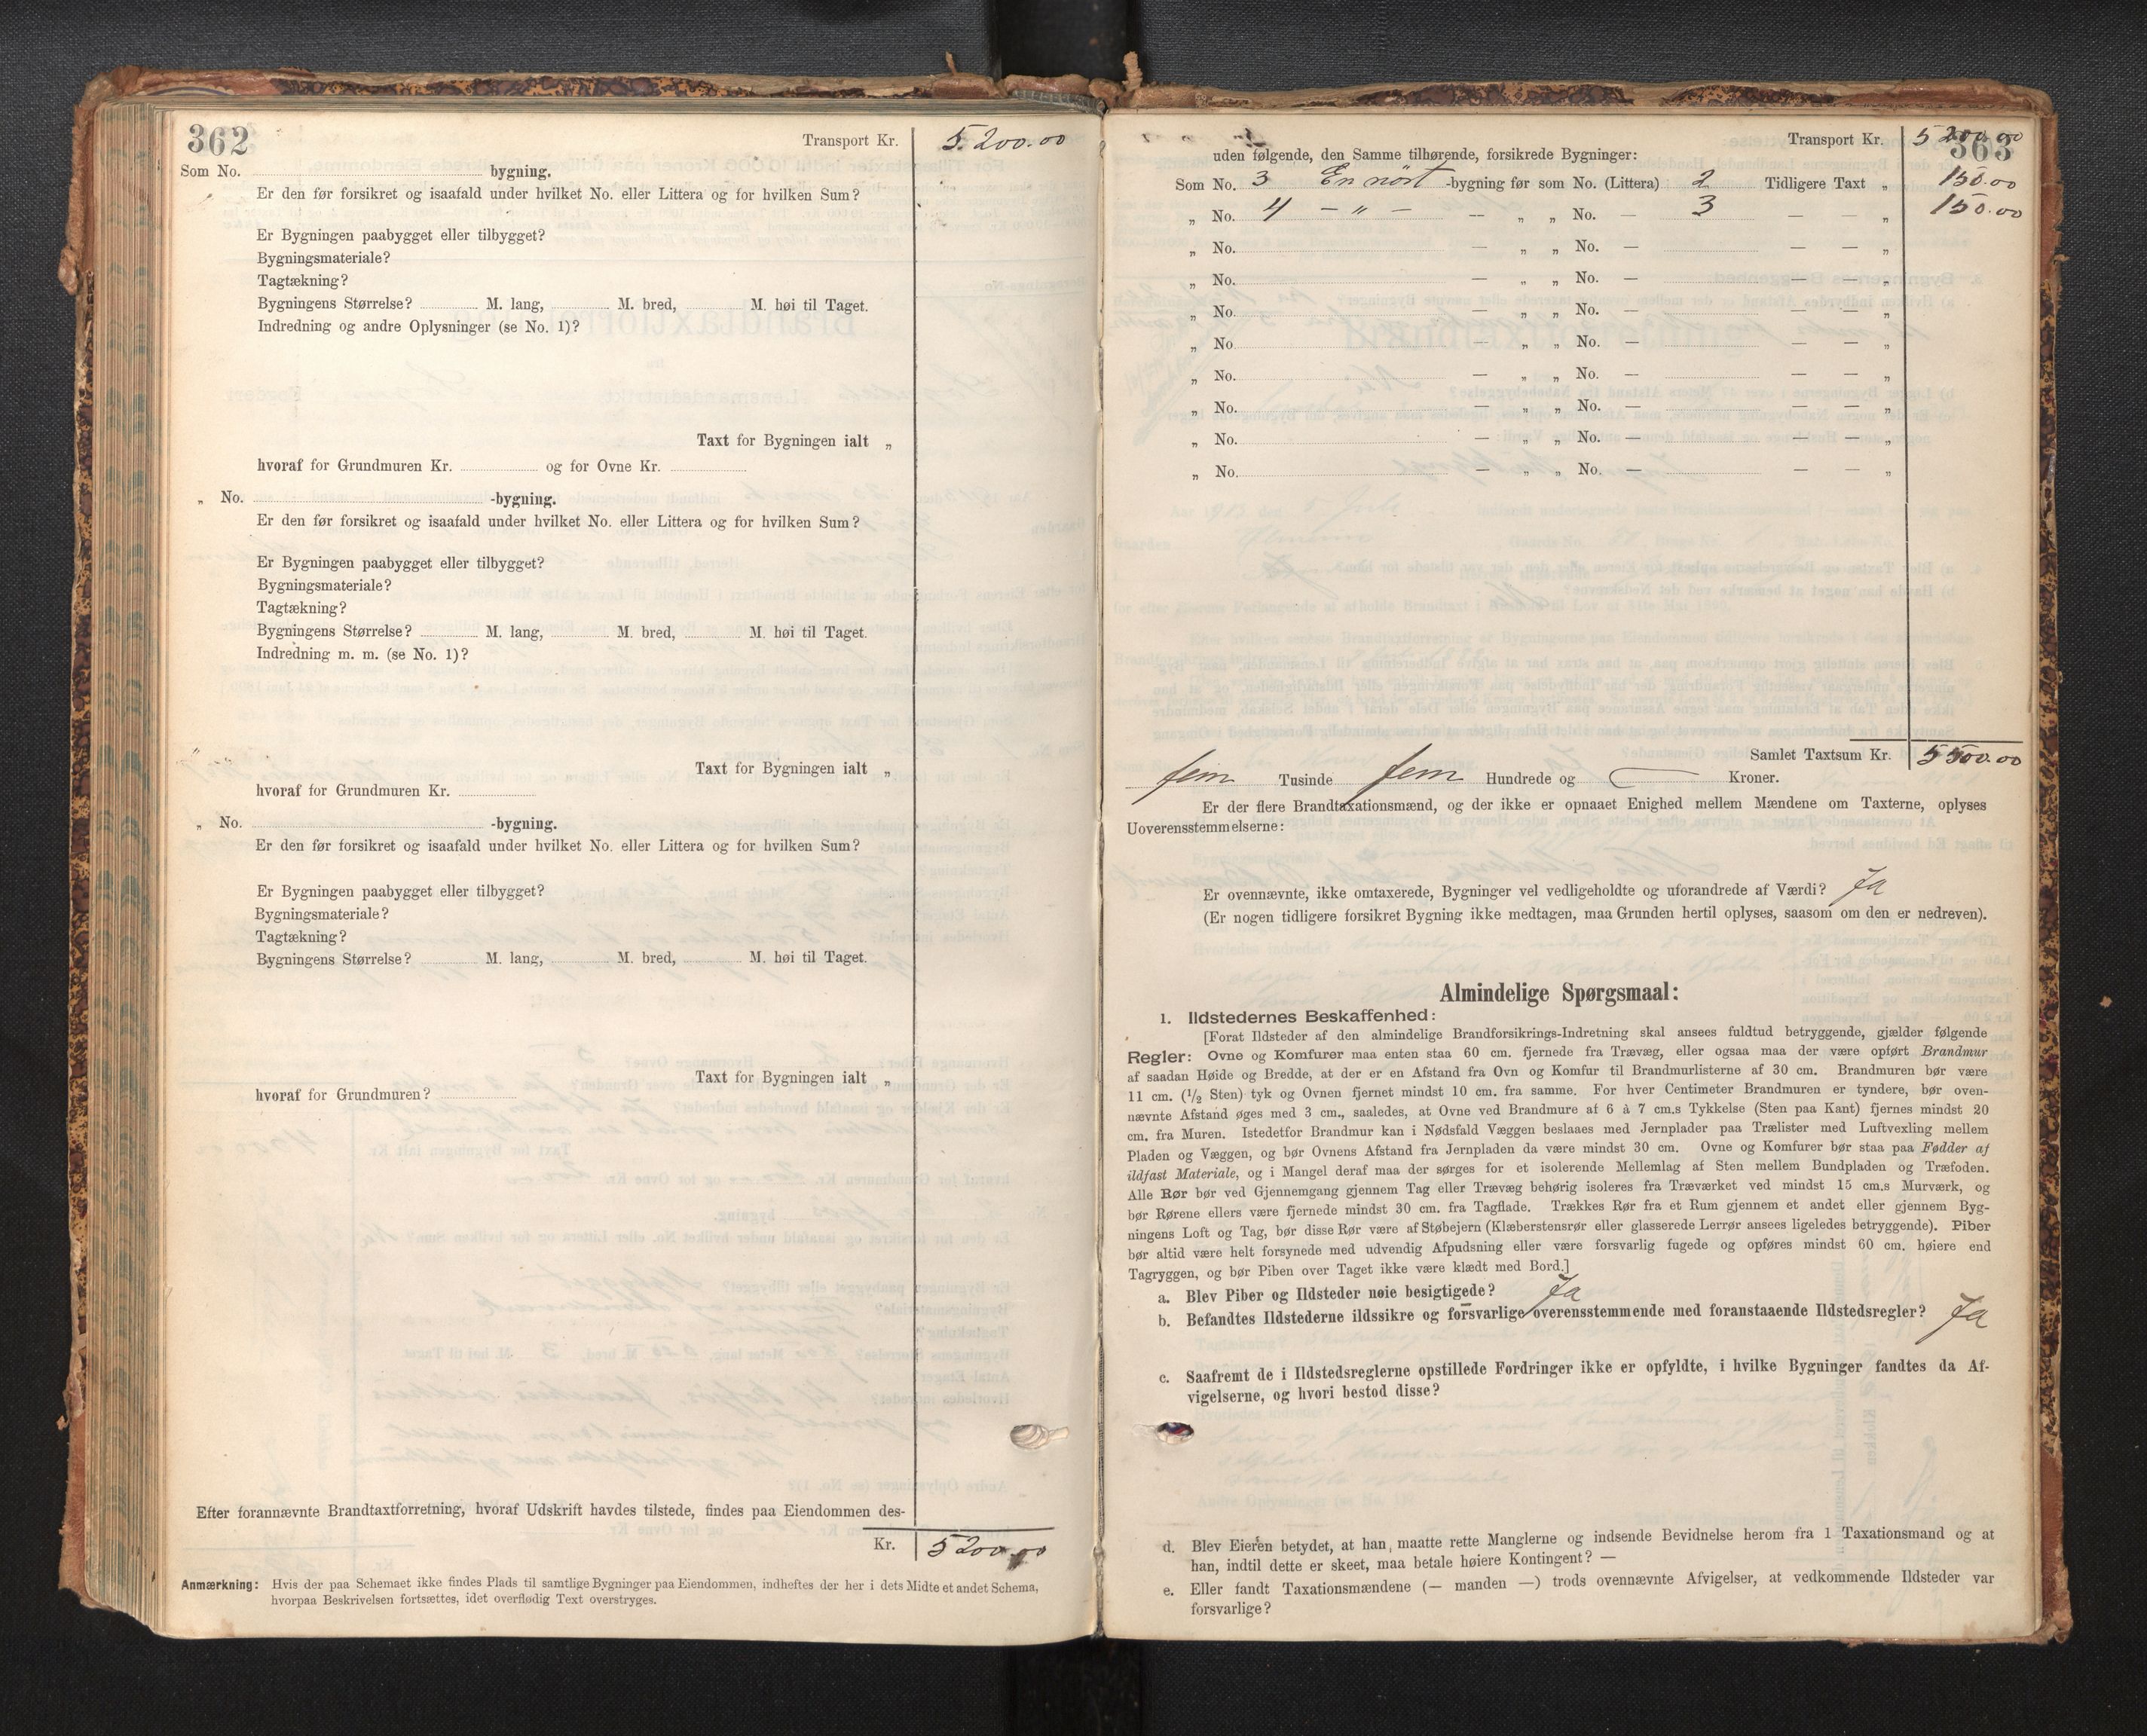 362
Transport Kr. 5200.00
Som No. bygning.
Er den før forsikret og isaafald under hvilket No. eller Littera og for hvilken Sum?
Er Bygningen paabygget eller tilbygget?
Bygningsmateriale?
Tagtækning?
Bygningens Størrelse? M. lang, M. bred, M. høi til Taget.
Indredning og andre Oplysninger (se No. 1)?
Taxt for Bygningen ialt „
hvoraf for Grundmuren Kr. og for Ovne Kr.
„ No. -bygning.
Er den før forsikret og isaafald under hvilket No. eller Littera og for hvilken Sum?
Er Bygningen paabygget eller tilbygget?
Bygningsmateriale?
Tagtækning?
Bygningens Størrelse? M. lang, M. bred, M. høi til Taget.
Indredning m. m. (se No. 1)?
Taxt for Bygningen ialt „
hvoraf for Grundmuren Kr.
„ No. -bygning.
Er den før forsikret og isaafald under hvilket No. eller Littera og for hvilken Sum?
Er Bygningen paabygget eller tilbygget?
Bygningsmateriale?
Tagtækning?
Bygningens Størrelse? M. lang, M. bred, M. høi til Taget.
Taxt for Bygningen ialt „
hvoraf for Grundmuren?
Efter forannævnte Brandtaxtforretning, hvoraf Udskrift havdes tilstede, findes paa Eiendommen des-
Kr. 5200.00
Anmærkning: Hvis der paa Schemaet ikke findes Plads til samtlige Bygninger paa Eiendommen, indheftes der her i dets Midte et andet Schema,
hvorpaa Beskrivelsen fortsættes, idet overflødig Text overstryges.
Transport Kr. 5200.00
363
uden følgende, den Samme tilhørende, forsikrede Bygninger:
Som No. 3 En nöst -bygning før som No. (Littera) 2 Tidligere Taxt „ 150.00
„ No. 4 — „ — — „ „ No. — 3 — — „ 150.00
„ No. — „ „ No. — — — „
„ No. — „ „ No. — — — „
„ No. — „ „ No. — — — „
„ No. — „ „ No. — — — „
„ No. — „ „ No. — — — „
„ No. — „ „ No. — — — „
„ No. — „ „ No. — — — „
„ No. — „ „ No. — — — „
Samlet Taxtsum Kr. 5500.00
fem Tusinde fem Hundrede og — Kroner.
Er der flere Brandtaxationsmænd, og der ikke er opnaaet Enighed mellem Mændene om Taxterne, oplyses
Uoverensstemmelserne:
Er ovennævnte, ikke omtaxerede, Bygninger vel vedligeholdte og uforandrede af Værdi? Ja
(Er nogen tidligere forsikret Bygning ikke medtagen, maa Grunden hertil oplyses, saasom om den er nedreven).
Almindelige Spørgsmaal:
1. Ildstedernes Beskaffenhed:
[Forat Ildsteder af den almindelige Brandforsikrings-Indretning skal ansees fuldtud betryggende, gjælder følgende
Regler: Ovne og Komfurer maa enten staa 60 cm. fjernede fra Trævæg, eller ogsaa maa der være opført Brandmur
af saadan Høide og Bredde, at der er en Afstand fra Ovn og Komfur til Brandmurlisterne af 30 cm. Brandmuren bør være
11 cm. (1/2 Sten) tyk og Ovnen fjernet mindst 10 cm. fra samme. For hver Centimeter Brandmuren er tyndere, bør oven-
nævnte Afstand øges med 3 cm., saaledes, at Ovne ved Brandmure af 6 à 7 cm.s Tykkelse (Sten paa Kant) fjernes mindst 20
cm. fra Muren. Istedetfor Brandmur kan i Nødsfald Væggen beslaaes med Jernplader paa Trælister med Luftvexling mellem
Pladen og Væggen, og bør Ovnens Afstand fra Jernpladen da være mindst 30 cm. Ovne og Komfurer bør staa paa Fødder af
ildfast Materiale, og i Mangel deraf maa der sørges for et isolerende Mellemlag af Sten mellem Bundpladen og Træfoden.
Alle Rør bør ved Gjennemgang gjennem Tag eller Trævæg behørig isoleres fra Træværket ved mindst 15 cm.s Murværk, og
bør Rørene ellers være fjernede mindst 30 cm. fra Tagflade. Trækkes Rør fra et Rum gjennem et andet eller gjennem Byg-
ningens Loft og Tag, bør disse Rør være af Støbejern (Klæberstensrør eller glasserede Lerrør ansees ligeledes betryggende). Piber
bør altid være helt forsynede med udvendig Afpudsning eller være forsvarlig fugede og opføres mindst 60 cm. høiere end
Tagryggen, og bør Piben over Taget ikke være klædt med Bord.]
a. Blev Piber og Ildsteder nøie besigtigede? Ja
b. Befandtes Ildstederne ildssikre og forsvarlige overensstemmende med foranstaaende Ildstedsregler? Ja
c. Saafremt de i Ildstedsreglerne opstillede Fordringer ikke er opfyldte, i hvilke Bygninger fandtes da Af-
vigelserne, og hvori bestod disse?
d. Blev Eieren betydet, at han, maatte rette Manglerne og indsende Bevidnelse herom fra 1 Taxationsmand og at
han, indtil dette er skeet, maa betale høiere Kontingent? —
e. Eller fandt Taxationsmændene (— manden —) trods ovennævnte Afvigelser, at vedkommende Ildsteder var
forsvarlige?